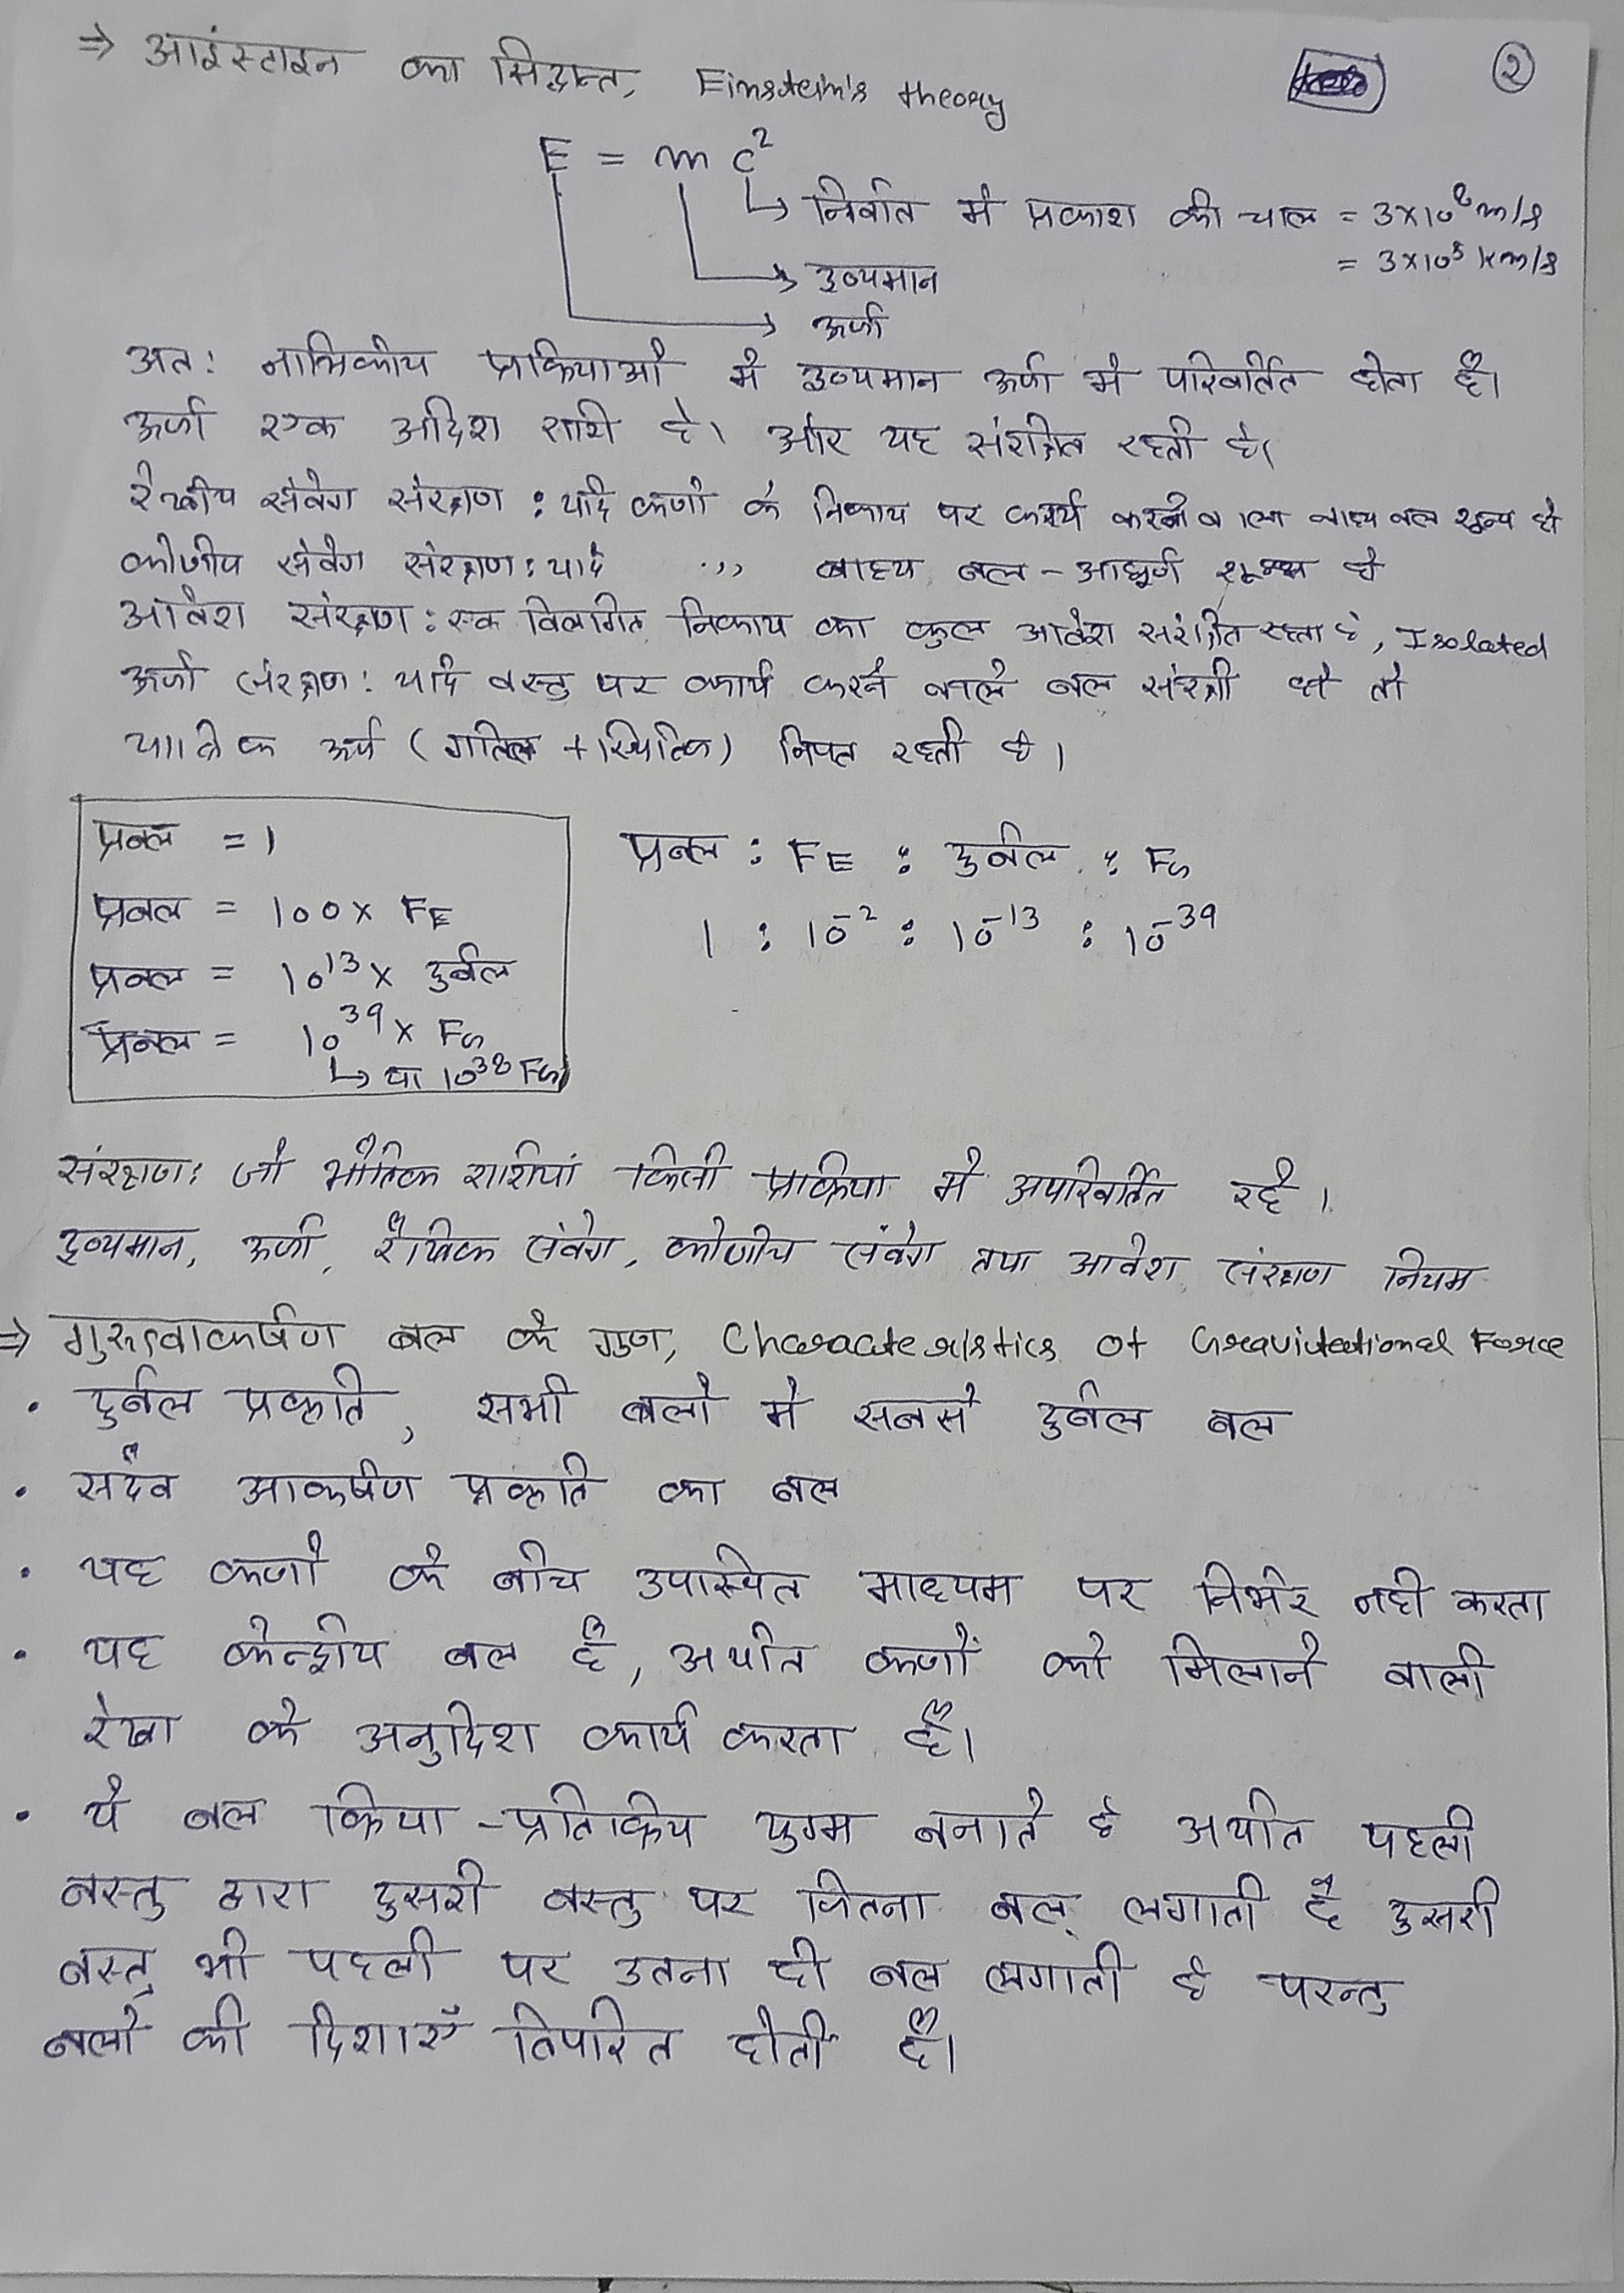 ⇒ आइंस्टाइन का सिद्धान्त, Einstein's theory
२
E = m c²
↳ निर्वात में प्रकाश की चाल = 3×10⁸ m/s
= 3×10⁵ km/s
→ द्रव्यमान
→ ऊर्जा
अतः नाभिकीय प्रक्रियाओ मे द्रव्यमान ऊर्जा मे परिवर्तित होता है।
ऊर्जा एक अदिश राशि है। और यह संरक्षित रहती है।
रेखीय संवेग संरक्षण : यदि कणो के निकाय पर कार्य करने वाला बाह्य बल शून्य हो
कोणीय संवेग संरक्षण : यदि ,,, बाह्य बल-आघूर्ण शून्य हो
आवेश संरक्षण : एक विलगित निकाय का कुल आवेश संरक्षित रहता है, Isolated
ऊर्जा संरक्षण : यदि वस्तु पर कार्य करने वाले बल संरक्षी हो तो
यांत्रिक ऊर्जा (गतिज + स्थितिज) नियत रहती है।
प्रबल = 1
प्रबल = 100 × FE
प्रबल = 10¹³ × दुर्बल
प्रबल = 10³⁹ × FG
↳ या 10³⁸ FG
प्रबल : FE : दुर्बल : FG
1 : 10⁻² : 10⁻¹³ : 10⁻³⁹
संरक्षण : जो भौतिक राशियां किसी प्रक्रिया मे अपरिवर्तित रहे।
द्रव्यमान, ऊर्जा, रैखिक संवेग, कोणीय संवेग तथा आवेश संरक्षण नियम
⇒ गुरुत्वाकर्षण बल के गुण, Characteristics of Gravitational Force
• दुर्बल प्रकृति, सभी बलो मे सबसे दुर्बल बल
• सदैव आकर्षण प्रकृति का बल
• यह कणो के बीच उपस्थित माध्यम पर निर्भर नही करता
• यह केन्द्रीय बल है, अर्थात कणों को मिलाने वाली
रेखा के अनुदिश कार्य करता है।
• ये बल क्रिया-प्रतिक्रिय युग्म बनाते है अर्थात पहली
वस्तु द्वारा दुसरी वस्तु पर जितना बल लगाती है दुसरी
वस्तु भी पहली पर उतना ही बल लगाती है परन्तु
बलो की दिशाएँ विपरित होती है।